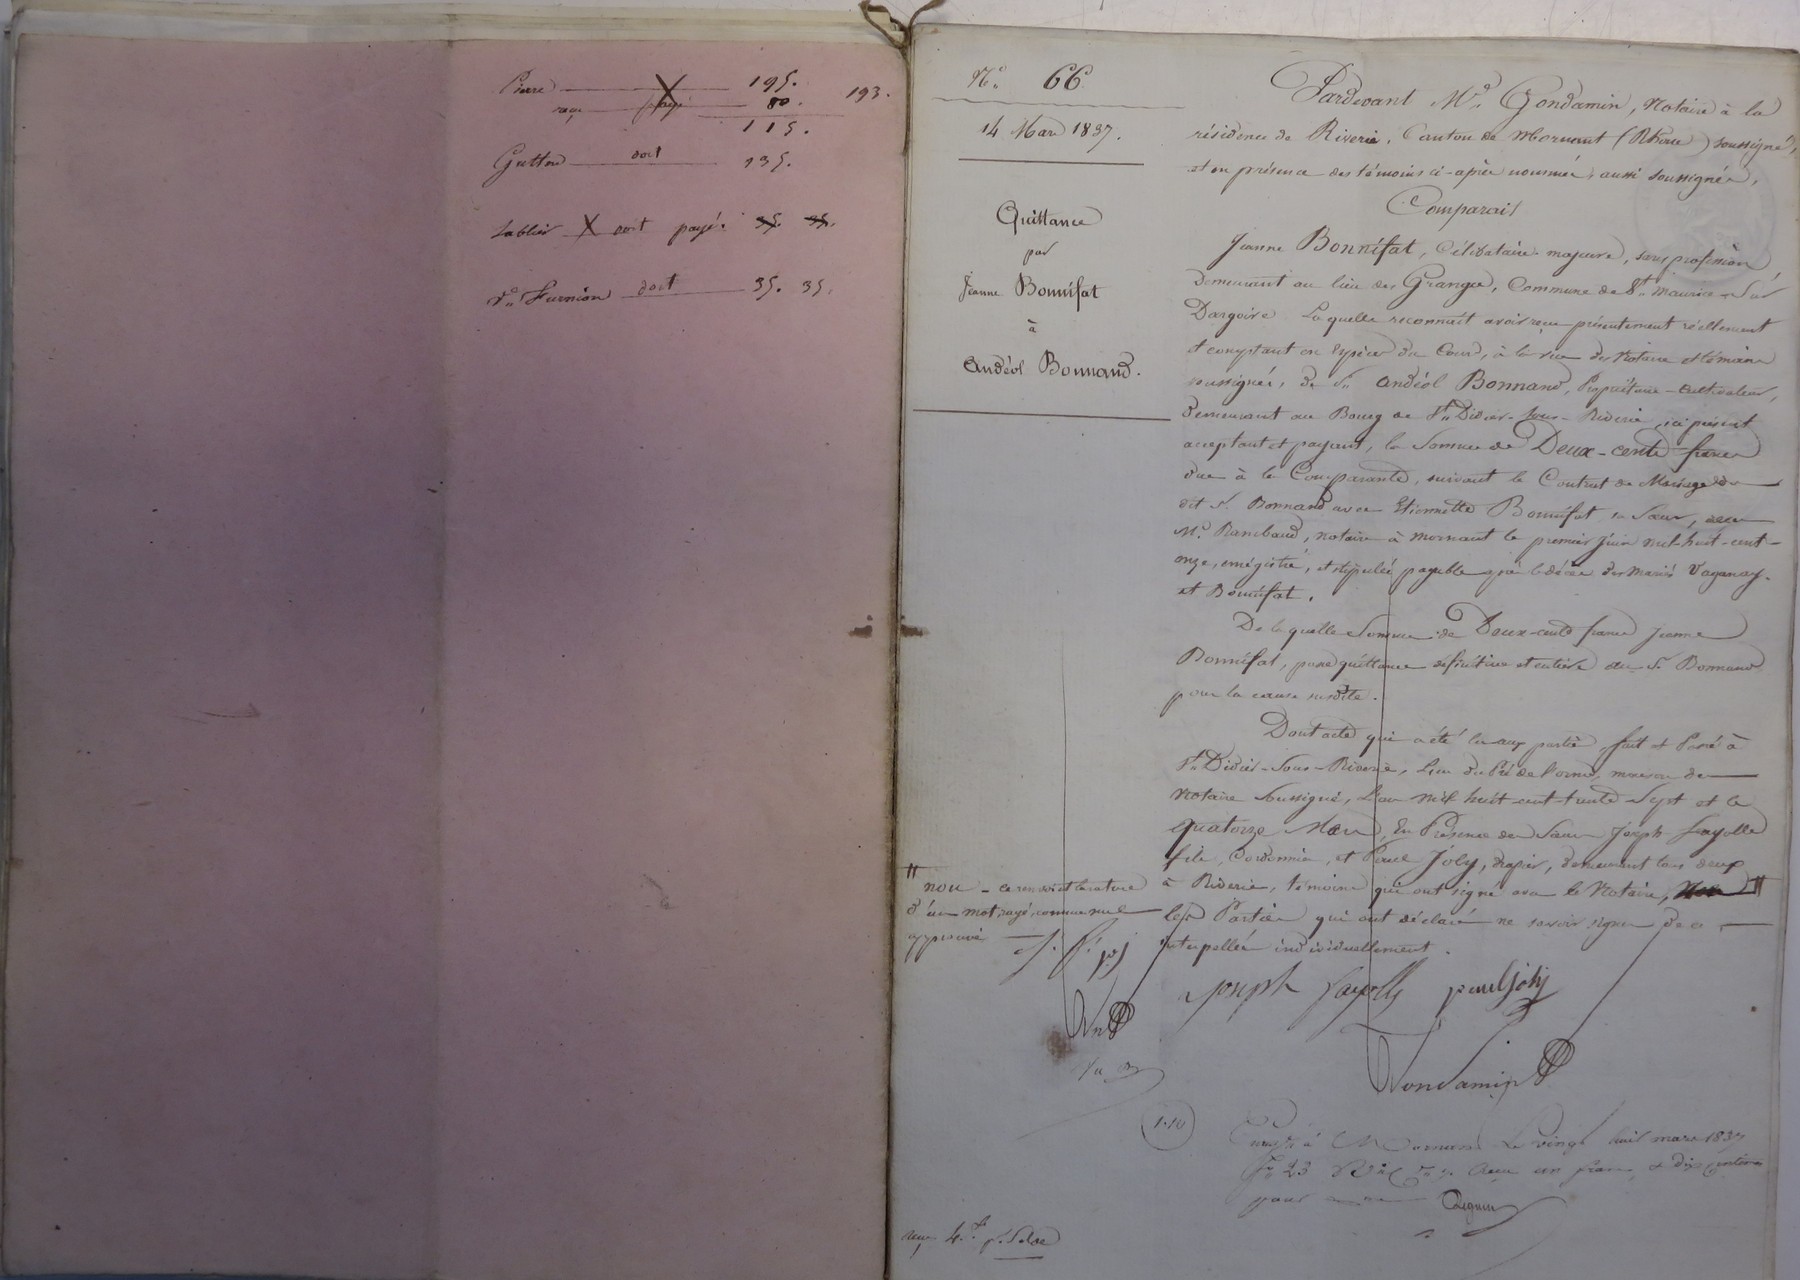 Pierre 195. 193.
reçu payé 80.
115.
Gratton doit 135.
Sablier X doit payé. 35. 35.
Ve Furnion doit 35. 35.
No. 66
14 Mars 1837.
Quittance
par
Jeanne Bonnifat
à
Andéol Bonnand.
Pardevant Me Gondamin, Notaire à la
résidence de Riverie, Canton de Mornant (Rhône) soussigné,
et en présence des témoins ci-après nommés, aussi soussignés,
Comparait
Jeanne Bonnifat, Célibataire majeure, sans profession
demeurant au lieu des Granges, Commune de St. Maurice-Sur
Dargoire. Laquelle reconnait avoir reçu présentement réellement
et comptant en Espèces du Cours, à la vue des Notaire et témoins
soussignés, de Sr. Andéol Bonnand, Propriétaire-Cultivateur,
demeurant au Bourg de St. Didier-sous-Riverie, ici présent
acceptant et payant, la Somme de Deux-cents francs
due à la Comparante, suivant le Contrat de Mariage du
dit Sr. Bonnand avec Etiennette Bonnifat sa Sœur, reçu
Me. Rambaud, notaire à Mornant le premier Juin mil-huit-cent-
onze, enregistré, et stipulée payable après le décès des mariés Vaganay
et Bonnifat.
De laquelle Somme de Deux-cents francs Jeanne
Bonnifat, passe quittance définitive et entière au Sr. Bonnand
pour la cause susdite.
Dont acte qui a été lu aux parties, fait et Passé à
St. Didier-Sous-Riverie, Lieu du Pré de l'orme, maison du
Notaire Soussigné, L'an mil huit-cent-trente-Sept et le
quatorze Mars, En Présence des Sieurs Joseph Fayolle
fils, Cordonnier, et Paul Joly, drapier, demeurant tous deux
à Riverie, témoins qui ont signé avec le Notaire, Non
les Parties qui ont déclaré ne savoir signer de ce
interpellées individuellement.
non - ce renvoi et la rature
d'un mot rayé comme nul
approuvés
J. f. p. j
Joseph Fayolle paul Joly
Gondamin
1.10
Enregtré à Mornant Le vingt huit mars 1837
fo 23 Reçu un franc & dix centimes
pour
reçu 4.f p. Solde